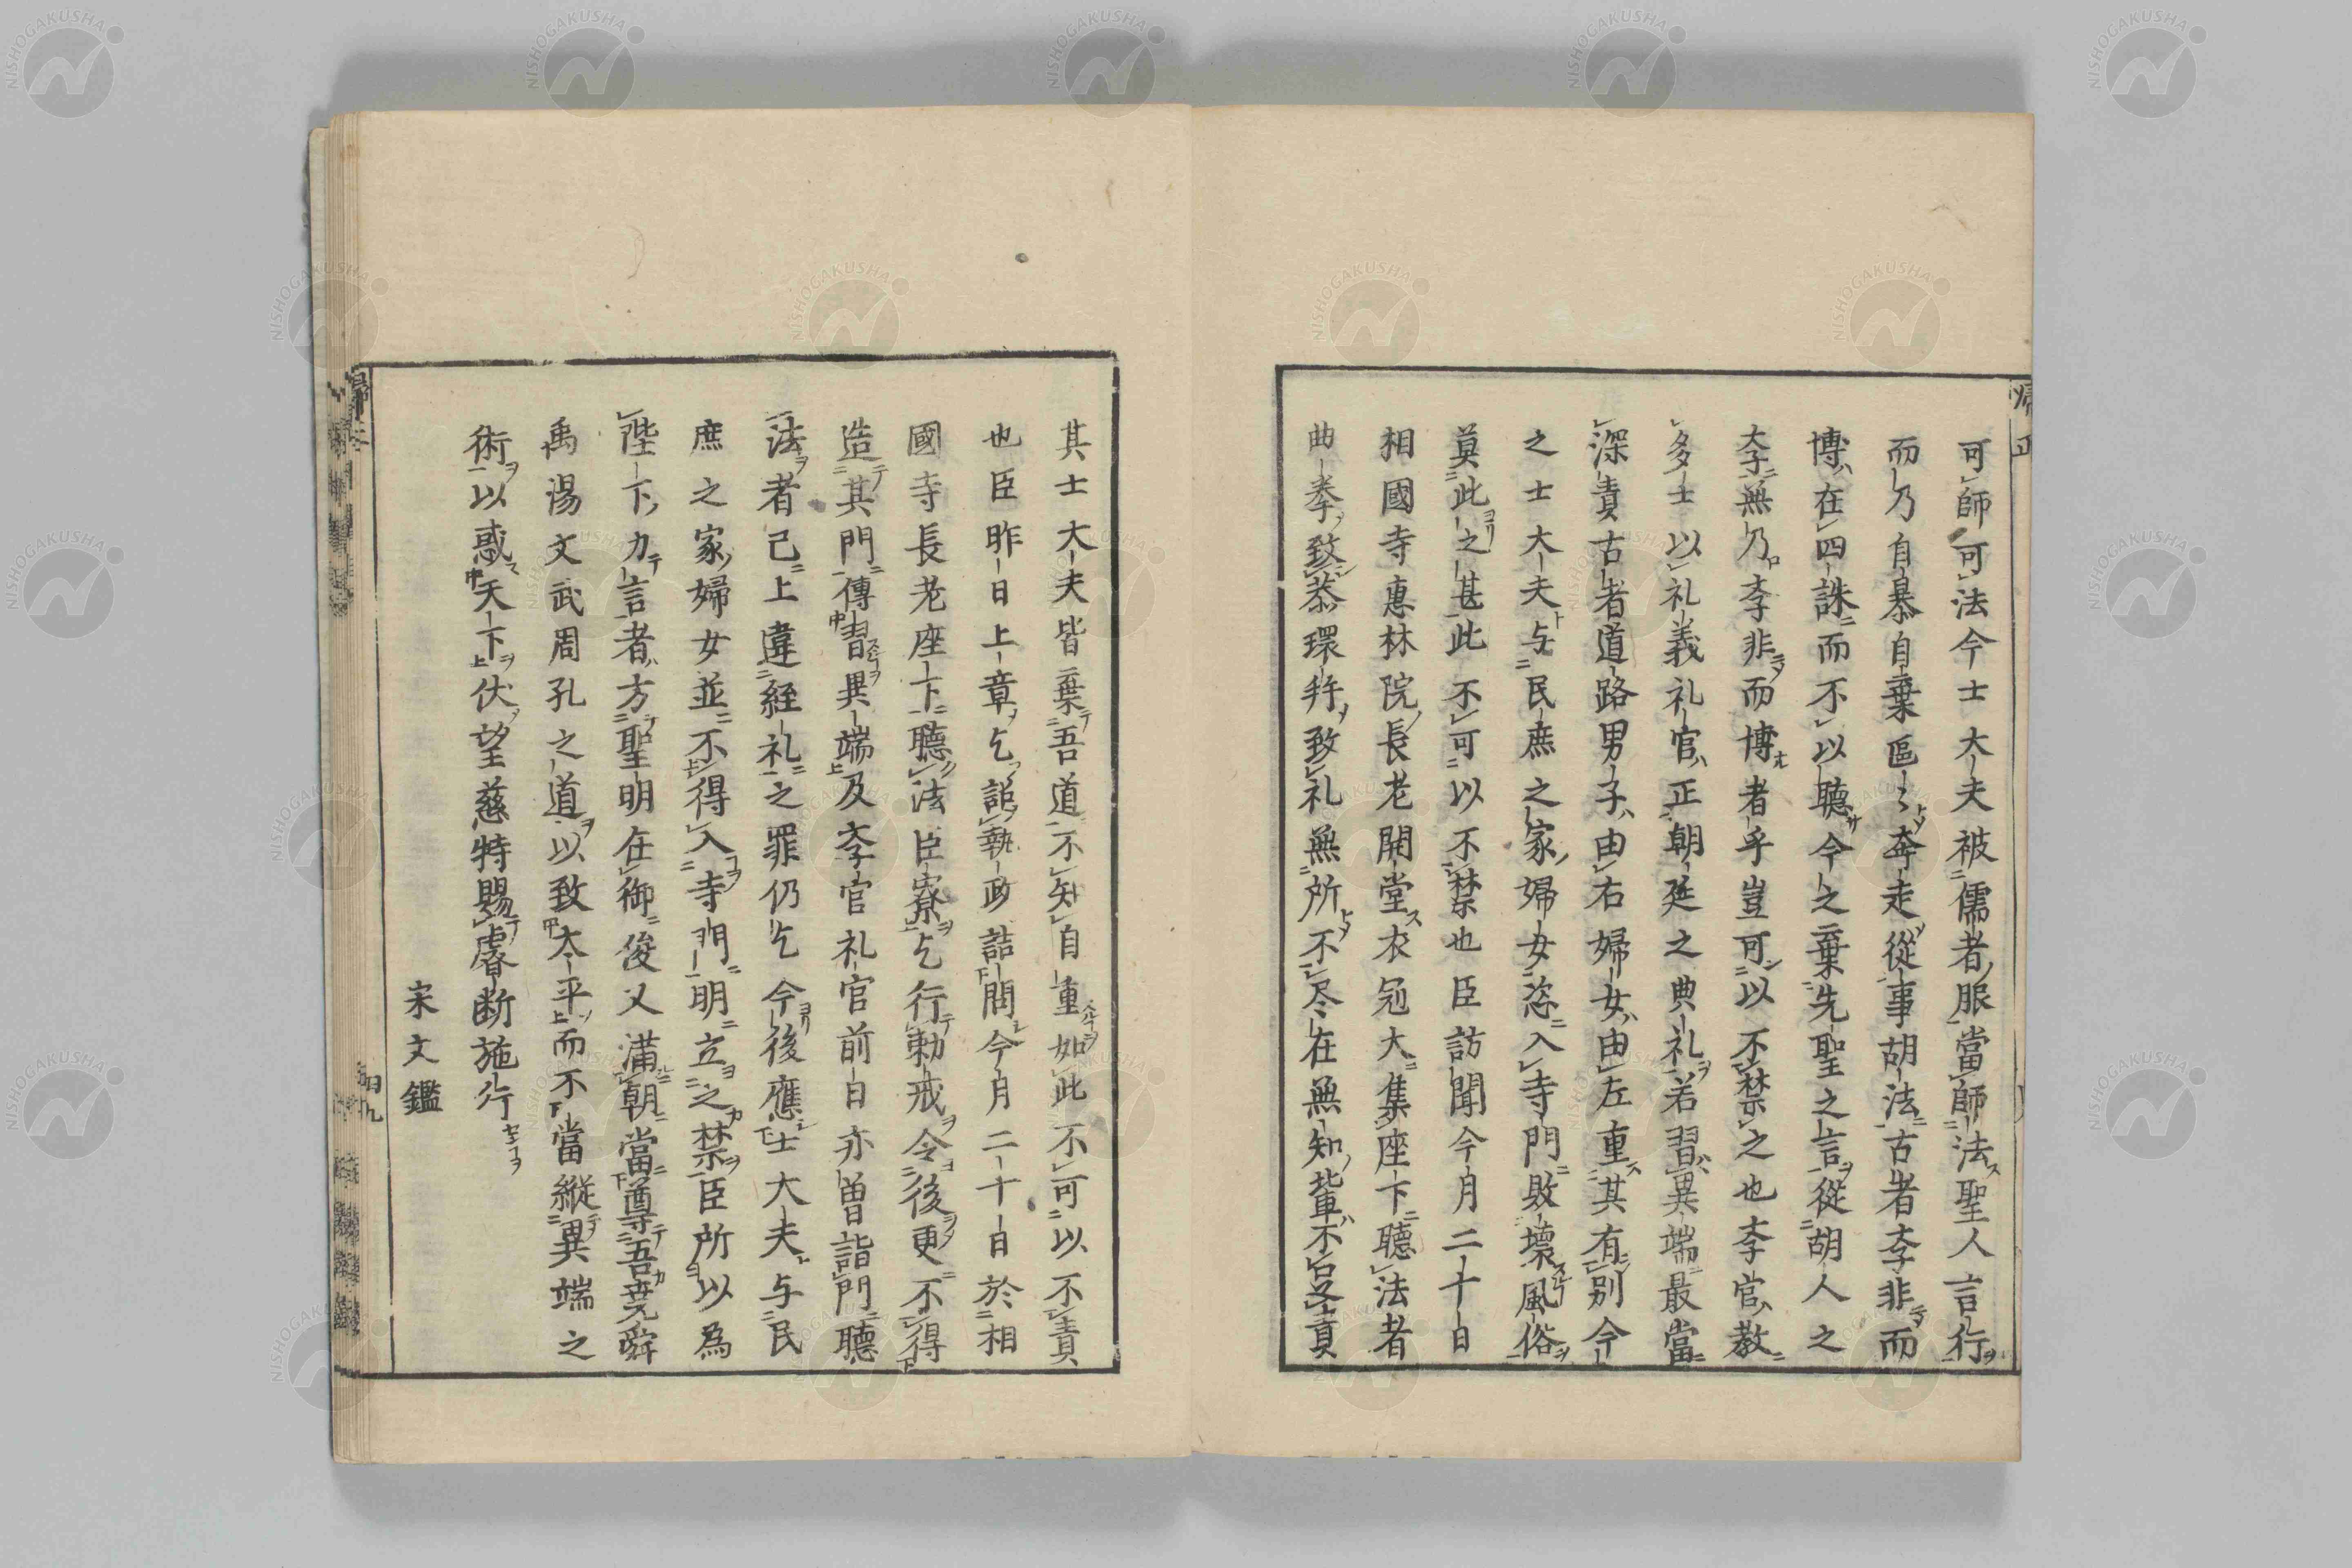 可師可法今士大夫被儒者服當師法聖人言行
而乃自暴自棄區〻奔走從事胡法古者斈非而
博在四誅而不以聽今之棄先聖之言從胡人之
斈無乃斈非而博者乎豈可以不禁之也斈官教
多士以礼義礼官正朝廷之典礼若習異端最當
深責古者道路男子由右婦女由左重其有別今
之士大夫与民庶之家婦女恣入寺門敗壞風俗
莫此之甚此不可以不禁也臣訪聞今月二十日
相國寺惠林院長老開堂衣冠大集座下聽法者
曲拳致恭環拜致礼無所不尽在無知輩不足責
其士大夫皆棄吾道不知自重如此不可以不責
也臣昨日上章乞詔執政詰問今月二十日於相
國寺長老座下聽法臣寮乞行勅戒今後更不得
造其門傳習異端及斈官礼官前日亦曽詣門聽
法者已上違經礼之罪仍乞今後應士大夫与民
庶之家婦女並不得入寺門明立之禁臣所以為
陛下力言者方聖明在御俊乂満朝當尊吾堯舜
禹湯文武周孔之道以致太平而不當縱異端之
術以惑天下伏望慈特賜睿断施行
宋文鑑